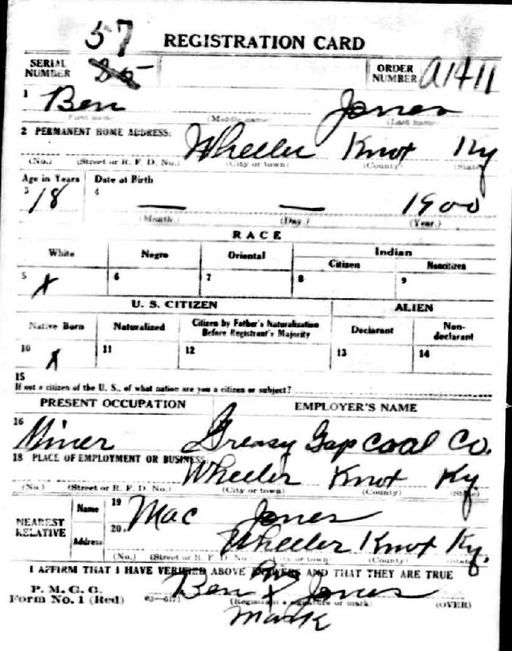 57
REGISTRATION CARD
SERIAL NUMBER 25 ORDER NUMBER A1411
1 Ben Jones
First name (Middle name) (Last name)
2 PERMANENT HOME ADDRESS:
Wheeler Knox Ky
(No.) (Street or R. F. D. No.) (City or town) (County) (State)
Age in Years Date of Birth
3 18 4 — — 1900
(Month.) (Day.) (Year.)
RACE
White Negro Oriental Indian
Citizen Noncitizen
5 X 6 7 8 9
U. S. CITIZEN ALIEN
Native Born Naturalized Citizen by Father's Naturalization Before Registrant's Majority Declarant Non-declarant
10 X 11 12 13 14
15
If not a citizen of the U. S., of what nation are you a citizen or subject?
PRESENT OCCUPATION EMPLOYER'S NAME
16 Miner Greasy Gap Coal Co.
18 PLACE OF EMPLOYMENT OR BUSINESS
Wheeler Knox Ky
(No.) (Street or R. F. D. No.) (City or town) (County) (State)
NEAREST RELATIVE
Name 19 Mac Jones
Address 20 Wheeler Knox Ky.
(No.) (Street or R. F. D. No.) (City or town) (County) (State)
I AFFIRM THAT I HAVE VERIFIED ABOVE ANSWERS AND THAT THEY ARE TRUE
P. M. G. O.
Form No. 1 (Red) Ben X Jones
(Registrant's signature or mark) (OVER)
mark